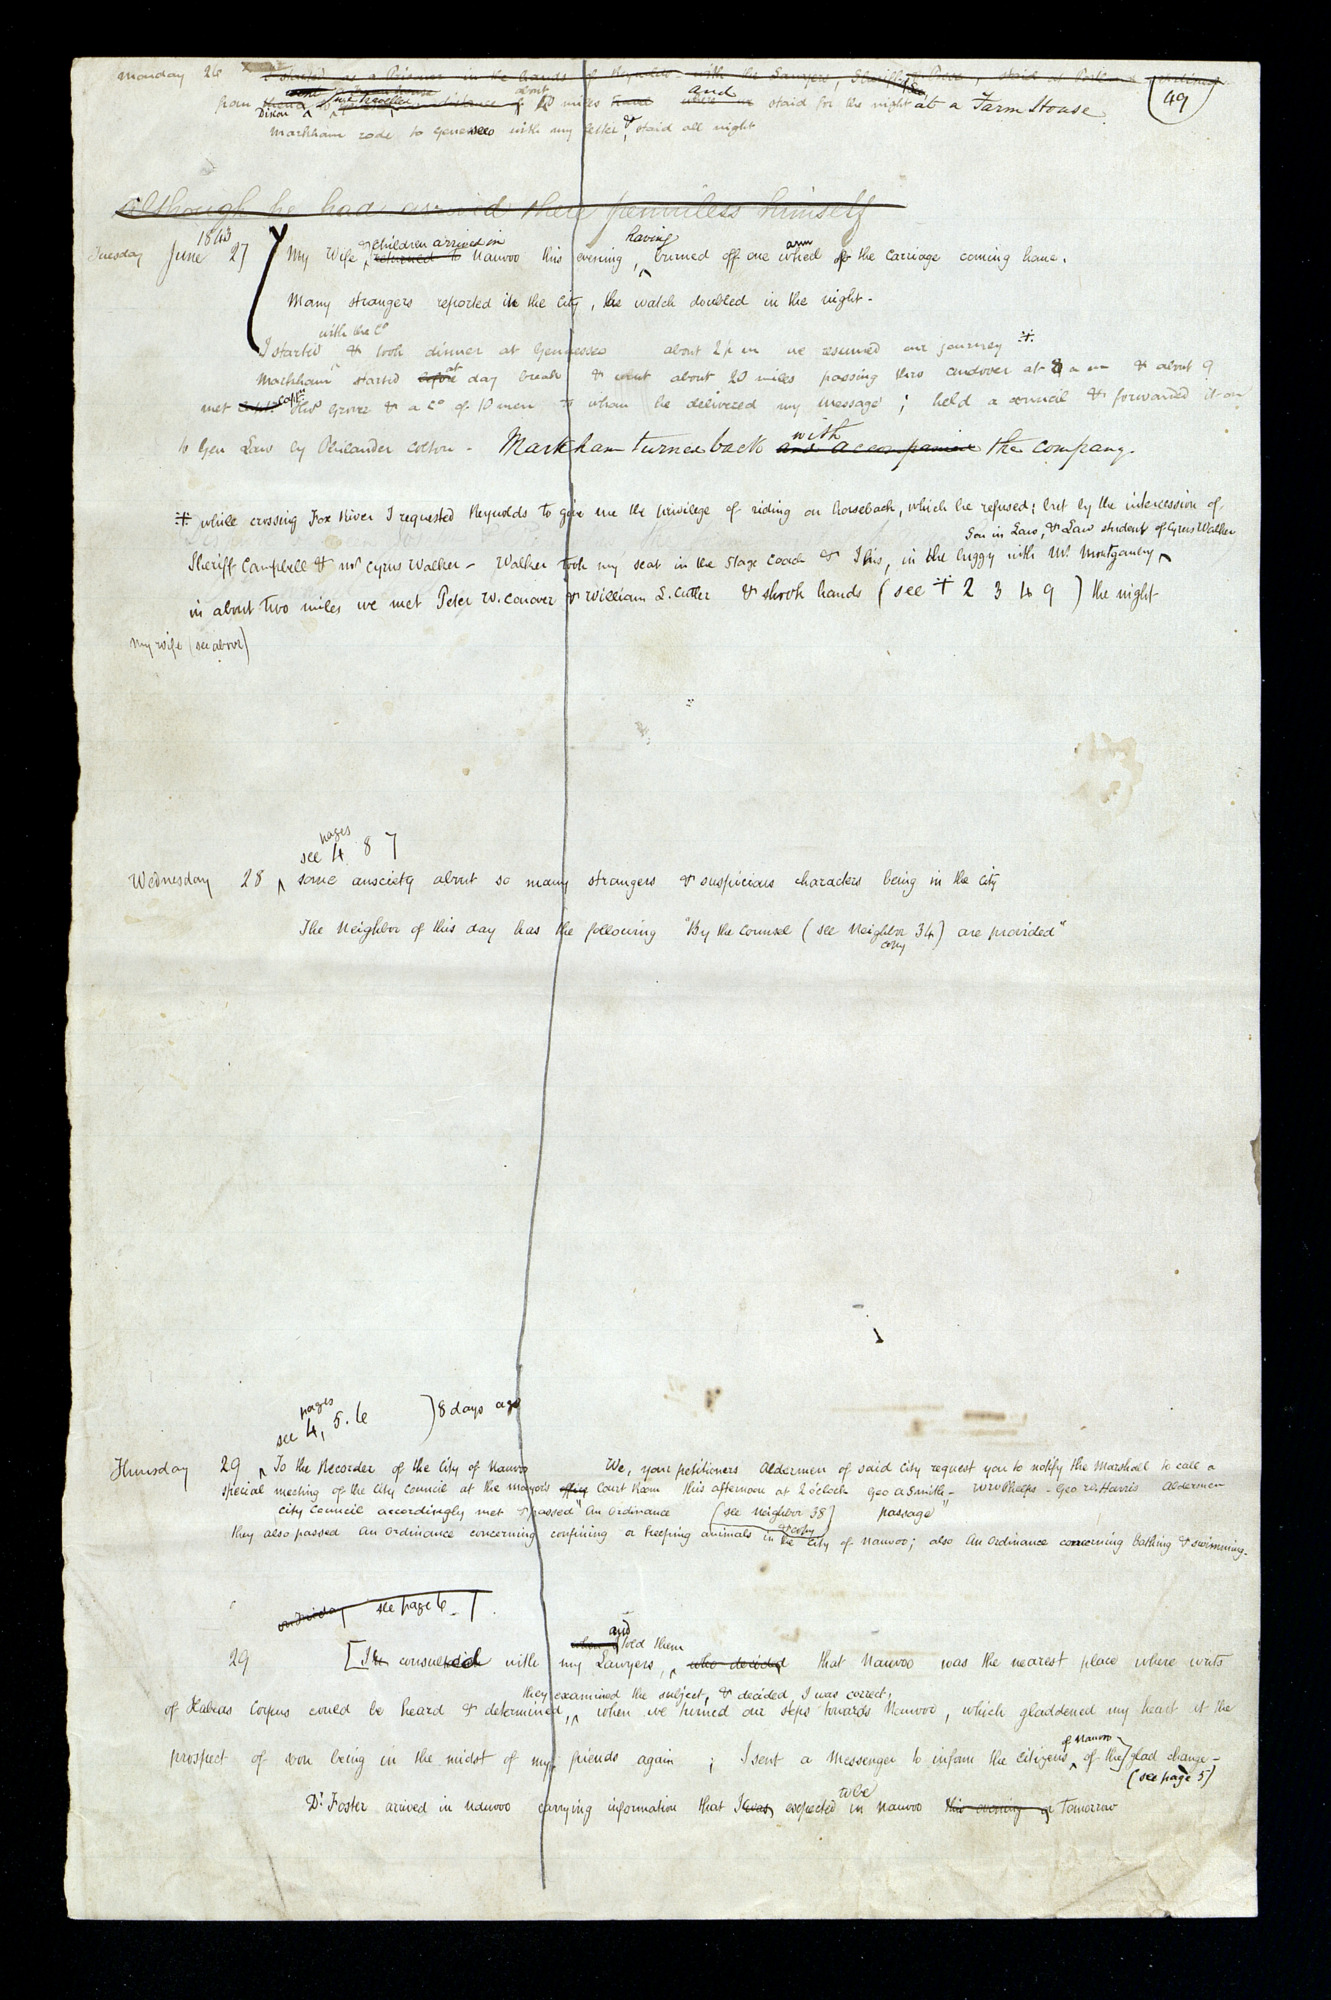 Monday 26 I started as a Prisoner in the hands of Reynolds with the Lawyers, Sheriff
49
from Dixon about miles and staid for the night at a Farm House
Markham rode to Genesseo with my letter & staid all night
although he had arrived there penniless himself
1843
Tuesday June 27 My Wife & children arrived in returned to Nauvoo this evening, having burned off one arm wheel of the Carriage coming home.
Many strangers reported in the City, the watch doubled in the night -
with the Co
I started & took dinner at Genesseo about 2 p m we resumed our journey
Markham started before at day break & went about 20 miles passing thro andover at 8 a m & about 9
met Captn Thos Grover & a Co of 10 men to whom he delivered my message; held a council & forwarded it on
to Gen Law by Philander Colton - Markham turned back with and accompanied the company.
while crossing Fox River I requested Reynolds to give me the privilege of riding on horseback, which he refused; but by the intercession of
Son in Law, & Law student of Cyrus Walker
Sheriff Campbell & mr Cyrus Walker - Walker took my seat in the Stage Coach & I his, in the buggy with Mr Montgomery
in about two miles we met Peter W. Conover & William L. Cutler & shook hands (see 2 3 49) the night
My wife (see above)
pages
see 4 8 7
Wednesday 28 some ansciety about so many strangers & suspicious characters being in the City
The Neighbor of this day has the following "By the Counsel (see Neighbor 34) are provided"
copy
pages
see 4, 5. 6 ) 8 days ago
Thursday 29 To the Recorder of the City of Nauvoo We, your petitioners Aldermen of said City request you to notify the Marshall to call a
special meeting of the City Council at the mayor's office Court Room this afternoon at 2 o'clock Geo A Smith - W W Phelps - Geo W. Harris Aldermen
City Council accordingly met & passed "An Ordinance (see Neighbor 38) passage"
& copy
they also passed An Ordinance concerning confining or keeping animals in the City of Nauvoo; also An Ordinance concerning bathing & swimming.
see page 6
and
told them
29 [I consulted with my Lawyers, who decided that Nauvoo was the nearest place where writs
they examined the subject, & decided I was correct,
of Habeas Corpus could be heard & determined, when we turned our steps towards Nauvoo, which gladdened my heart at the
of Nauvoo
prospect of soon being in the midst of my friends again; I sent a Messenger to inform the Citizens of the glad change -
(see page 5)
to be
Dr Foster arrived in Nauvoo carrying information that I was expected in Nauvoo this evening or Tomorrow